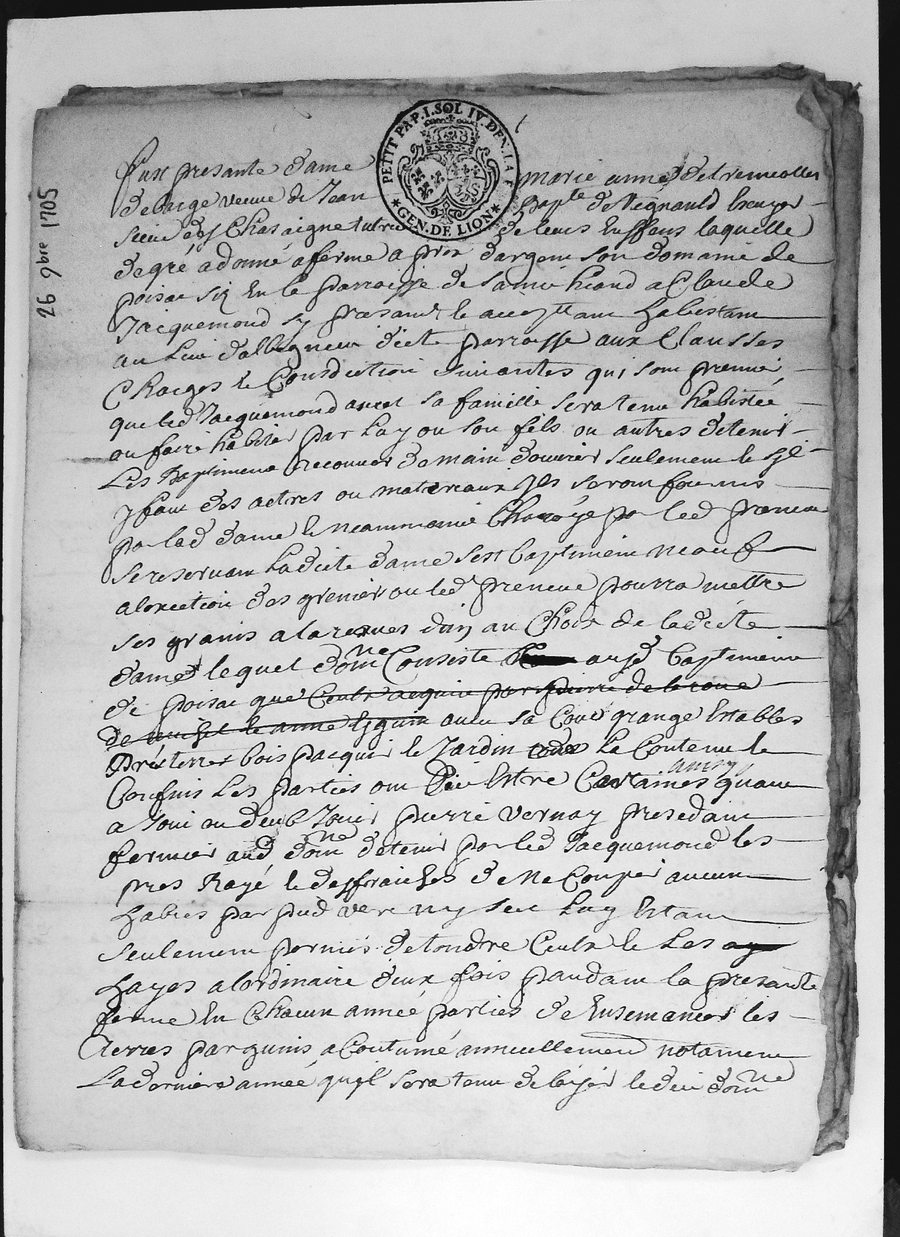 26 9bre 1705
PETIT PAP. I. SOL IV. DEN. LA F.
GEN. DE LION
Fust presante dame marie anne de tremeolles
de barge veuve de Jean bapte de Regnauld Escuyer
sieur des Chasaigne tutrice de leurs Enffens laquelle
de gré a donné a ferme a prix dargent son domaine de
poisac siz En la parroisse de Claude
Jacquemond Ly presant le acceptant habistant
au Lieu dalbigneux dicte parroisse aux Clausses
Charges le Condiction suivantes qui sont premie
que led Jacquemond avecq sa famille sera tenu habistée
ou faire habiter par Luy ou son fils ou autres detenir
Les baptimens recouver de main douvrier seulement le sil
y faut des actres ou materiaux Ils seront fournis
par lad dame le neammoins Charoyé par led preneur
se reservant Ladicte dame sest baptiment neauf
a lexection des grenier ou led preneur pourra mettre
ses grains a la reserves dun au Choix de ladicte
dame lequel domne Consiste aux baptiment
de poisac que Ceulx acquis par pierre de la roue
le anne Eyguin avec sa Cour grange Estables
Prés terres bois pacquier le Jardin La Contenue le
Confins Les parties ont dit Estre Certaines quant
a Joui ou deub Jouir pierre vernay presedant
fermier aud domne detenir par led Jacquemond les
pres Rayé le deffraichés de Ne Couper aucuns
habres par pied vere ny sec Luy Estant
seulement permis de tondre Ceulx le Les
hayes a lordinaire deux fois pandant la presante
ferme En Chacun année parties de Ensemancer les
terres par guains acoutumé annuellement notament
La derniere année quyl sera tenu de laisser ledit domne